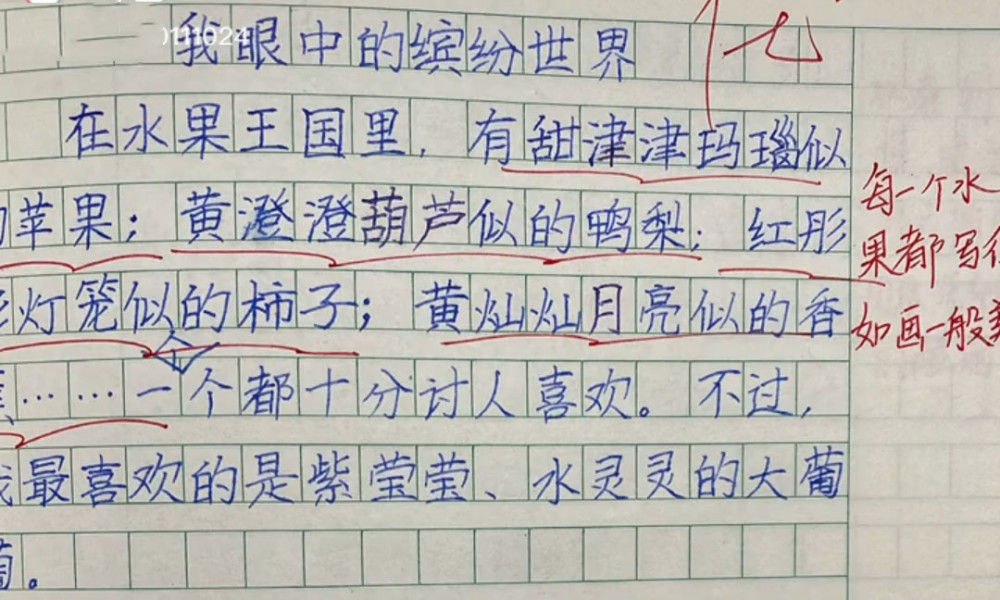 我眼中的缤纷世界
在水果王国里，有甜津津玛瑙似
的苹果；黄澄澄葫芦似的鸭梨；红彤
彤灯笼似的柿子；黄灿灿月亮似的香
个
蕉……一个都十分讨人喜欢。不过，
我最喜欢的是紫莹莹、水灵灵的大葡
萄。
每一个水
果都写得
如画一般美